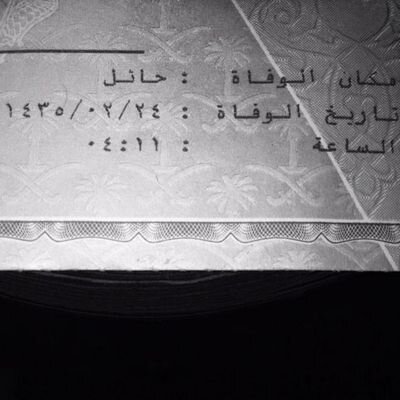 مكان الوفاة : حائل
تاريخ الوفاة : ١٤٣٥/٠٢/٢٤
الساعة : ٠٤:١١